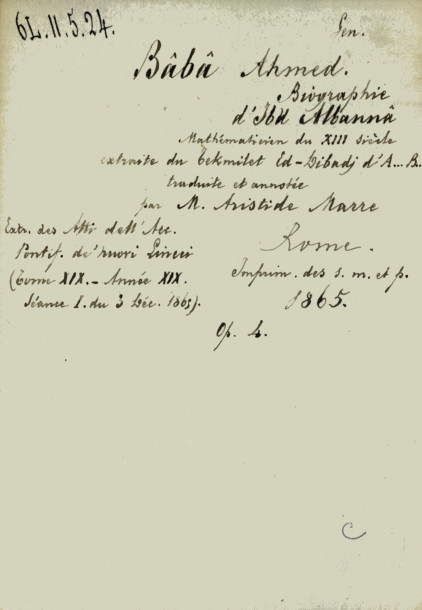 6L.11.5.24.
Gen.
Bâbâ Ahmed.
Biographie
d'Ibn Albannâ
Mathématicien du XIII siècle
extraite du Tekmilet Ed-Dibadj d'A... B..
traduite et annotée
par M. Aristide Marre
Extr. des Atti dell' Acc.
Pontif. de' nuovi Lincei
(Tome XIX. - Année XIX.
Séance I. du 3 Déc. 1865).
Rome.
Imprim. des s. m. et p.
1865.
Op. 4.
C